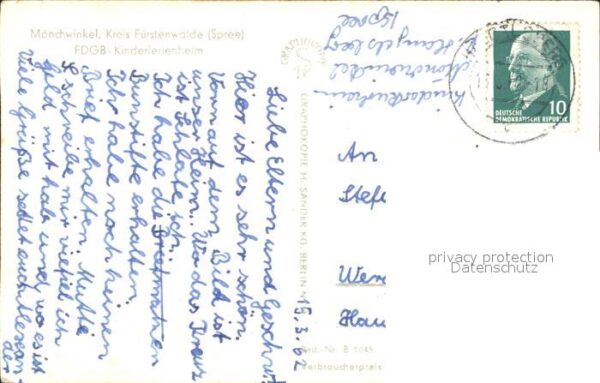 Mönchwinkel, Kreis Fürstenwalde (Spree)
FDGB-Kinderferienheim
Liebe Eltern und Geschwister
Hier ist es sehr schön.
Vorn auf dem Bild ist
unser Heim. Wo das Kreuz
ist schlafe ich.
Ich habe die Briefmatzen
Buntstifte erhalten.
Ich habe noch keinen
Brief erhalten. Mutti
schreibe mir wieviel ich
Geld mit hab und wo es ist
Viele Grüße sendet euch
GRAPHOKOPIE
GRAPHOKOPIE H. SANDER KG. BERLIN
15.3.62
b. Hangelsberg
Spree
10
DEUTSCHE
DEMOKRATISCHE REPUBLIK
An
Stefe
Wer
Hau
privacy protection
Datenschutz
Best.-Nr. B 1045
Verbraucherpreis